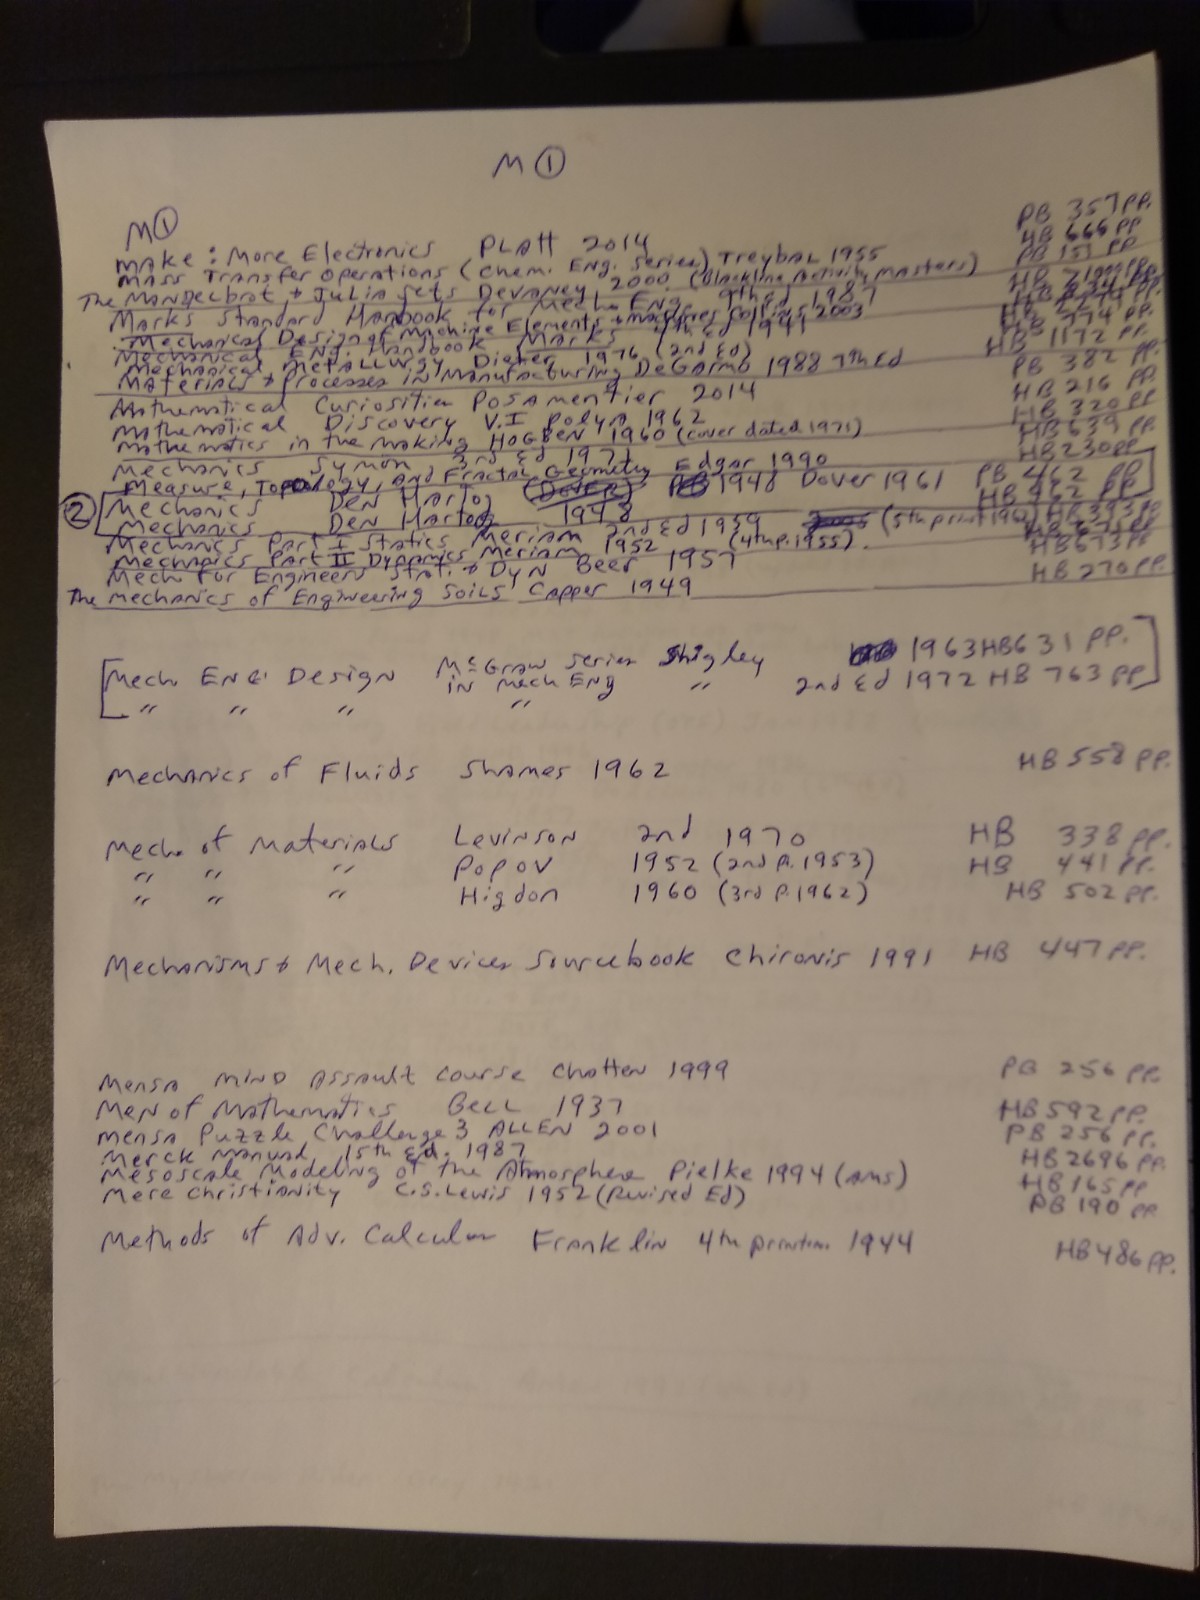 M ①
M①
Make: More Electronics Platt 2014 PB 357 pp.
Mass Transfer Operations (Chem. Eng. Series) Treybal 1955 HB 666 pp
The Mandelbrot + Julia Sets Devaney 2000 (Blackline Activity Masters) PB 151 pp
Marks Standard Handbook for Mech. Eng. 9th ed 1987 HB
Mechanical Design of Machine Elements + Machines Collins 2003 HB
Mechanical Eng. Handbook Marks 4th Ed 1941 HB
Mechanical Metallurgy Dieter 1976 (2nd Ed) HB 774 pp.
Materials + Processes in Manufacturing DeGarmo 1988 7th Ed HB 1172 pp.
Mathematical Curiosities Posamentier 2014 PB 382 pp.
Mathematical Discovery V.I Polya 1962 HB 216 pp.
Mathematics in the Making Hogben 1960 (cover dated 1971) HB 320 pp
Mechanics Symon 3rd Ed 1971 HB 639 pp
Measure, Topology, and Fractal Geometry Edgar 1990 HB 230 pp
② Mechanics Den Hartog 1948 Dover 1961 PB 462 pp
Mechanics Den Hartog 1948 HB 462 pp
Mechanics Part I Statics Meriam 2nd Ed 1959 (5th print 1962) HB
Mechanics Part II Dynamics Meriam 1952 (4th p. 1955). HB
Mech for Engineers Stat. + Dyn Beer 1957 HB 673 pp
The Mechanics of Engineering Soils Capper 1949 HB 270 pp.
Mech Eng Design McGraw Series Shigley 1963 HB 631 pp.
in Mech Eng " 2nd Ed 1972 HB 763 pp
" " " "
Mechanics of Fluids Shames 1962 HB 558 pp.
Mech. of Materials Levinson 2nd 1970 HB 338 pp.
" " " Popov 1952 (2nd p. 1953) HB 441 pp.
" " " Higdon 1960 (3rd p. 1962) HB 502 pp.
Mechanisms + Mech. Devices Sourcebook Chironis 1991 HB 447 pp.
Mensa Mind Assault Course Chatten 1999 PB 256 pp.
Men of Mathematics Bell 1937 HB 592 pp.
Mensa Puzzle Challenge 3 Allen 2001 PB 256 pp.
Merck Manual 15th Ed. 1987 HB 2696 pp.
Mesoscale Modeling of the Atmosphere Pielke 1994 (AMS) HB 165 pp
Mere Christianity C.S. Lewis 1952 (Revised Ed) PB 190 pp.
Methods of Adv. Calculus Franklin 4th printin. 1944 HB 486 pp.